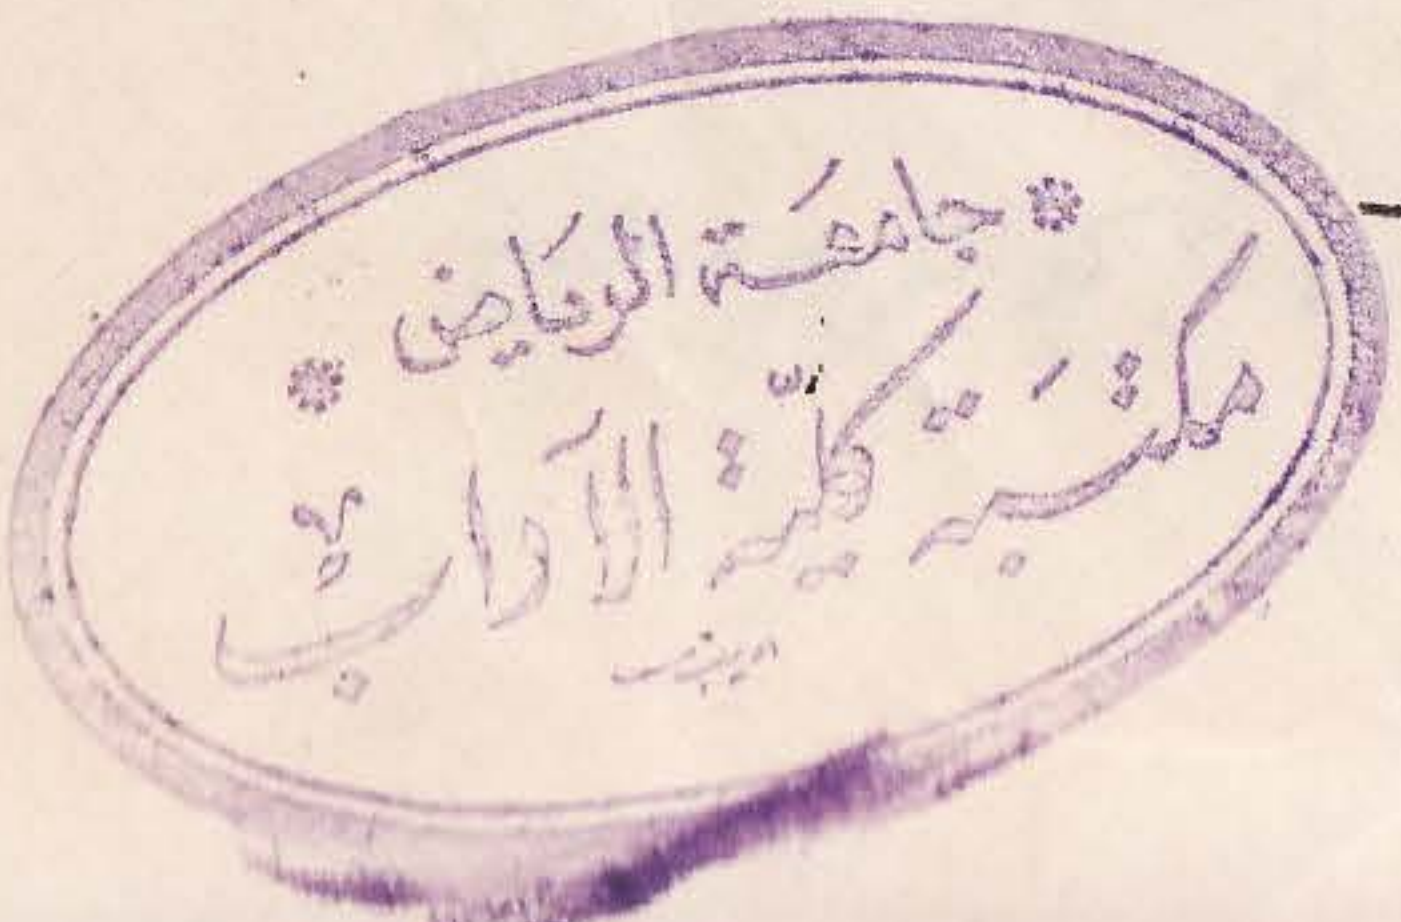 * جامعَة الريَاض *
مكتبَة كليّة الآداب